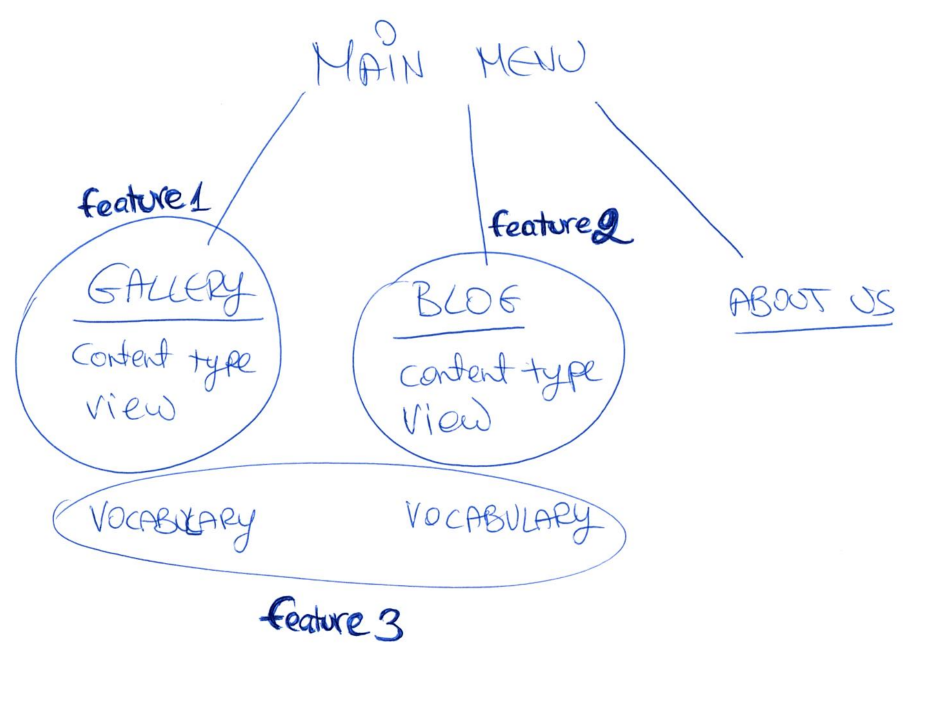 MAIN MENU
feature 1
feature 2
GALLERY
content type
view
BLOG
content type
view
ABOUT US
VOCABULARY
VOCABULARY
feature 3